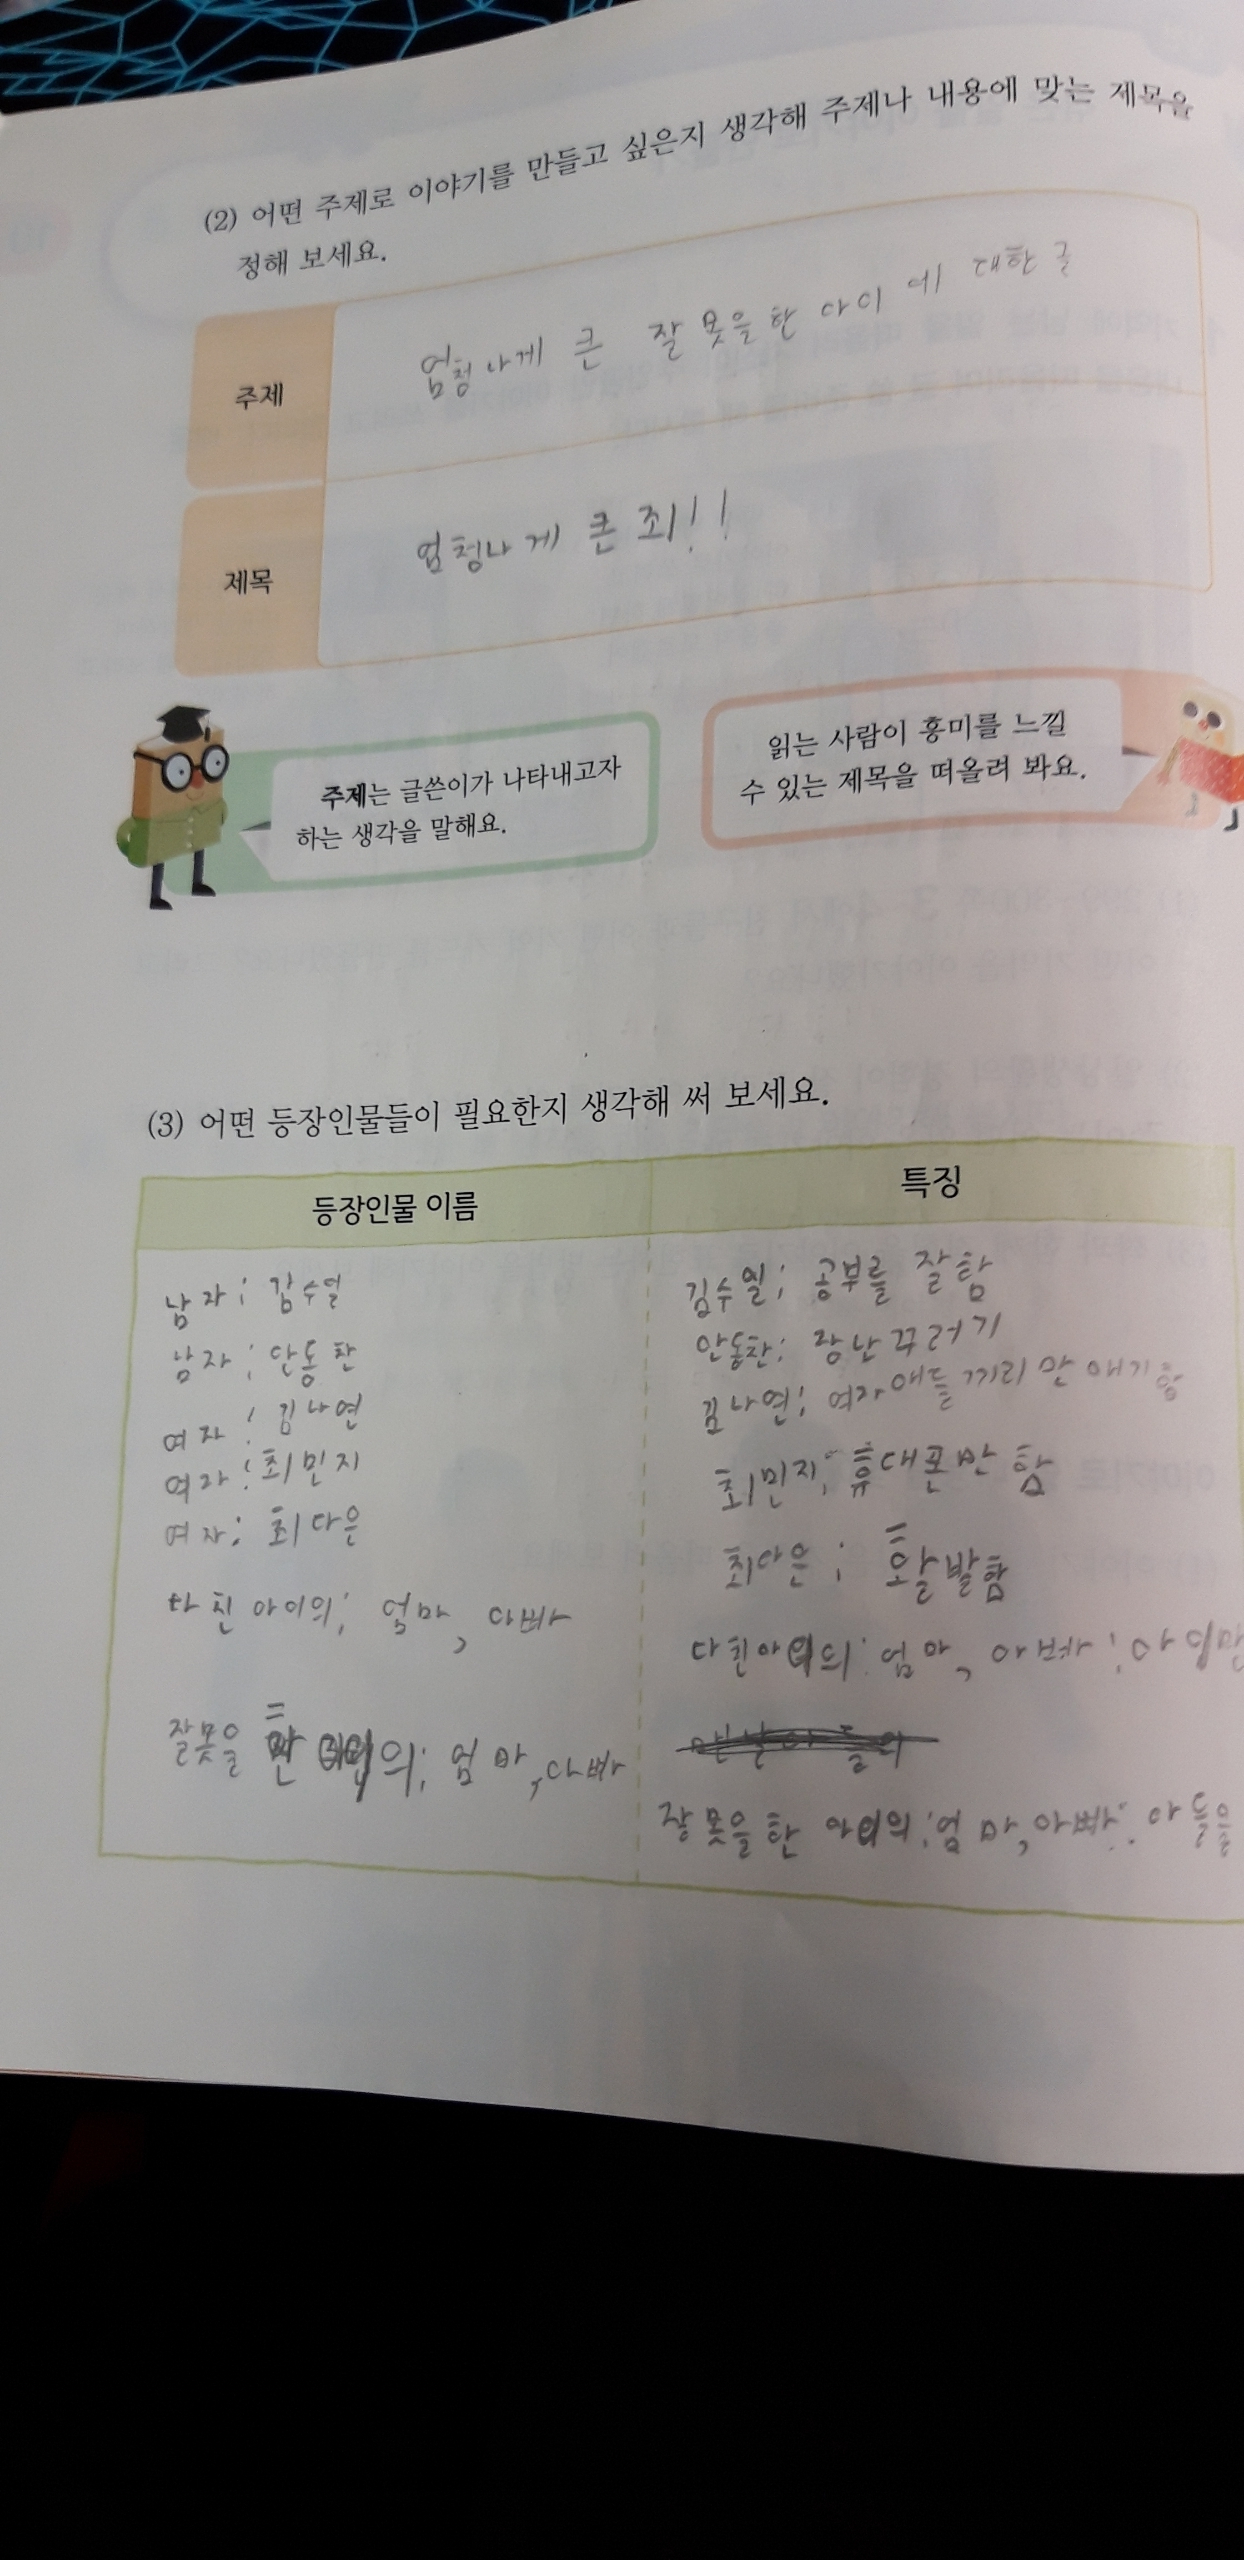 (2) 어떤 주제로 이야기를 만들고 싶은지 생각해 주제나 내용에 맞는 제목을
정해 보세요.
주제
엄청나게 큰 잘못을 한 아이에 대한 글
제목
엄청나게 큰 죄!!
주제는 글쓴이가 나타내고자
하는 생각을 말해요.
읽는 사람이 흥미를 느낄
수 있는 제목을 떠올려 봐요.
(3) 어떤 등장인물들이 필요한지 생각해 써 보세요.
등장인물 이름
특징
남자; 김수일
김수일; 공부를 잘함
남자; 안동찬
안동찬; 장난꾸러기
여자; 김나연
김나연; 여자애들끼리만 얘기함
여자; 최민지
최민지; 휴대폰만 함
여자; 최다은
최다은; 활발함
다친 아이의; 엄마, 아빠
다친아이의; 엄마, 아빠;
잘못을 한 아이의; 엄마, 아빠
잘못을 한 아이의; 엄마, 아빠; 아들을